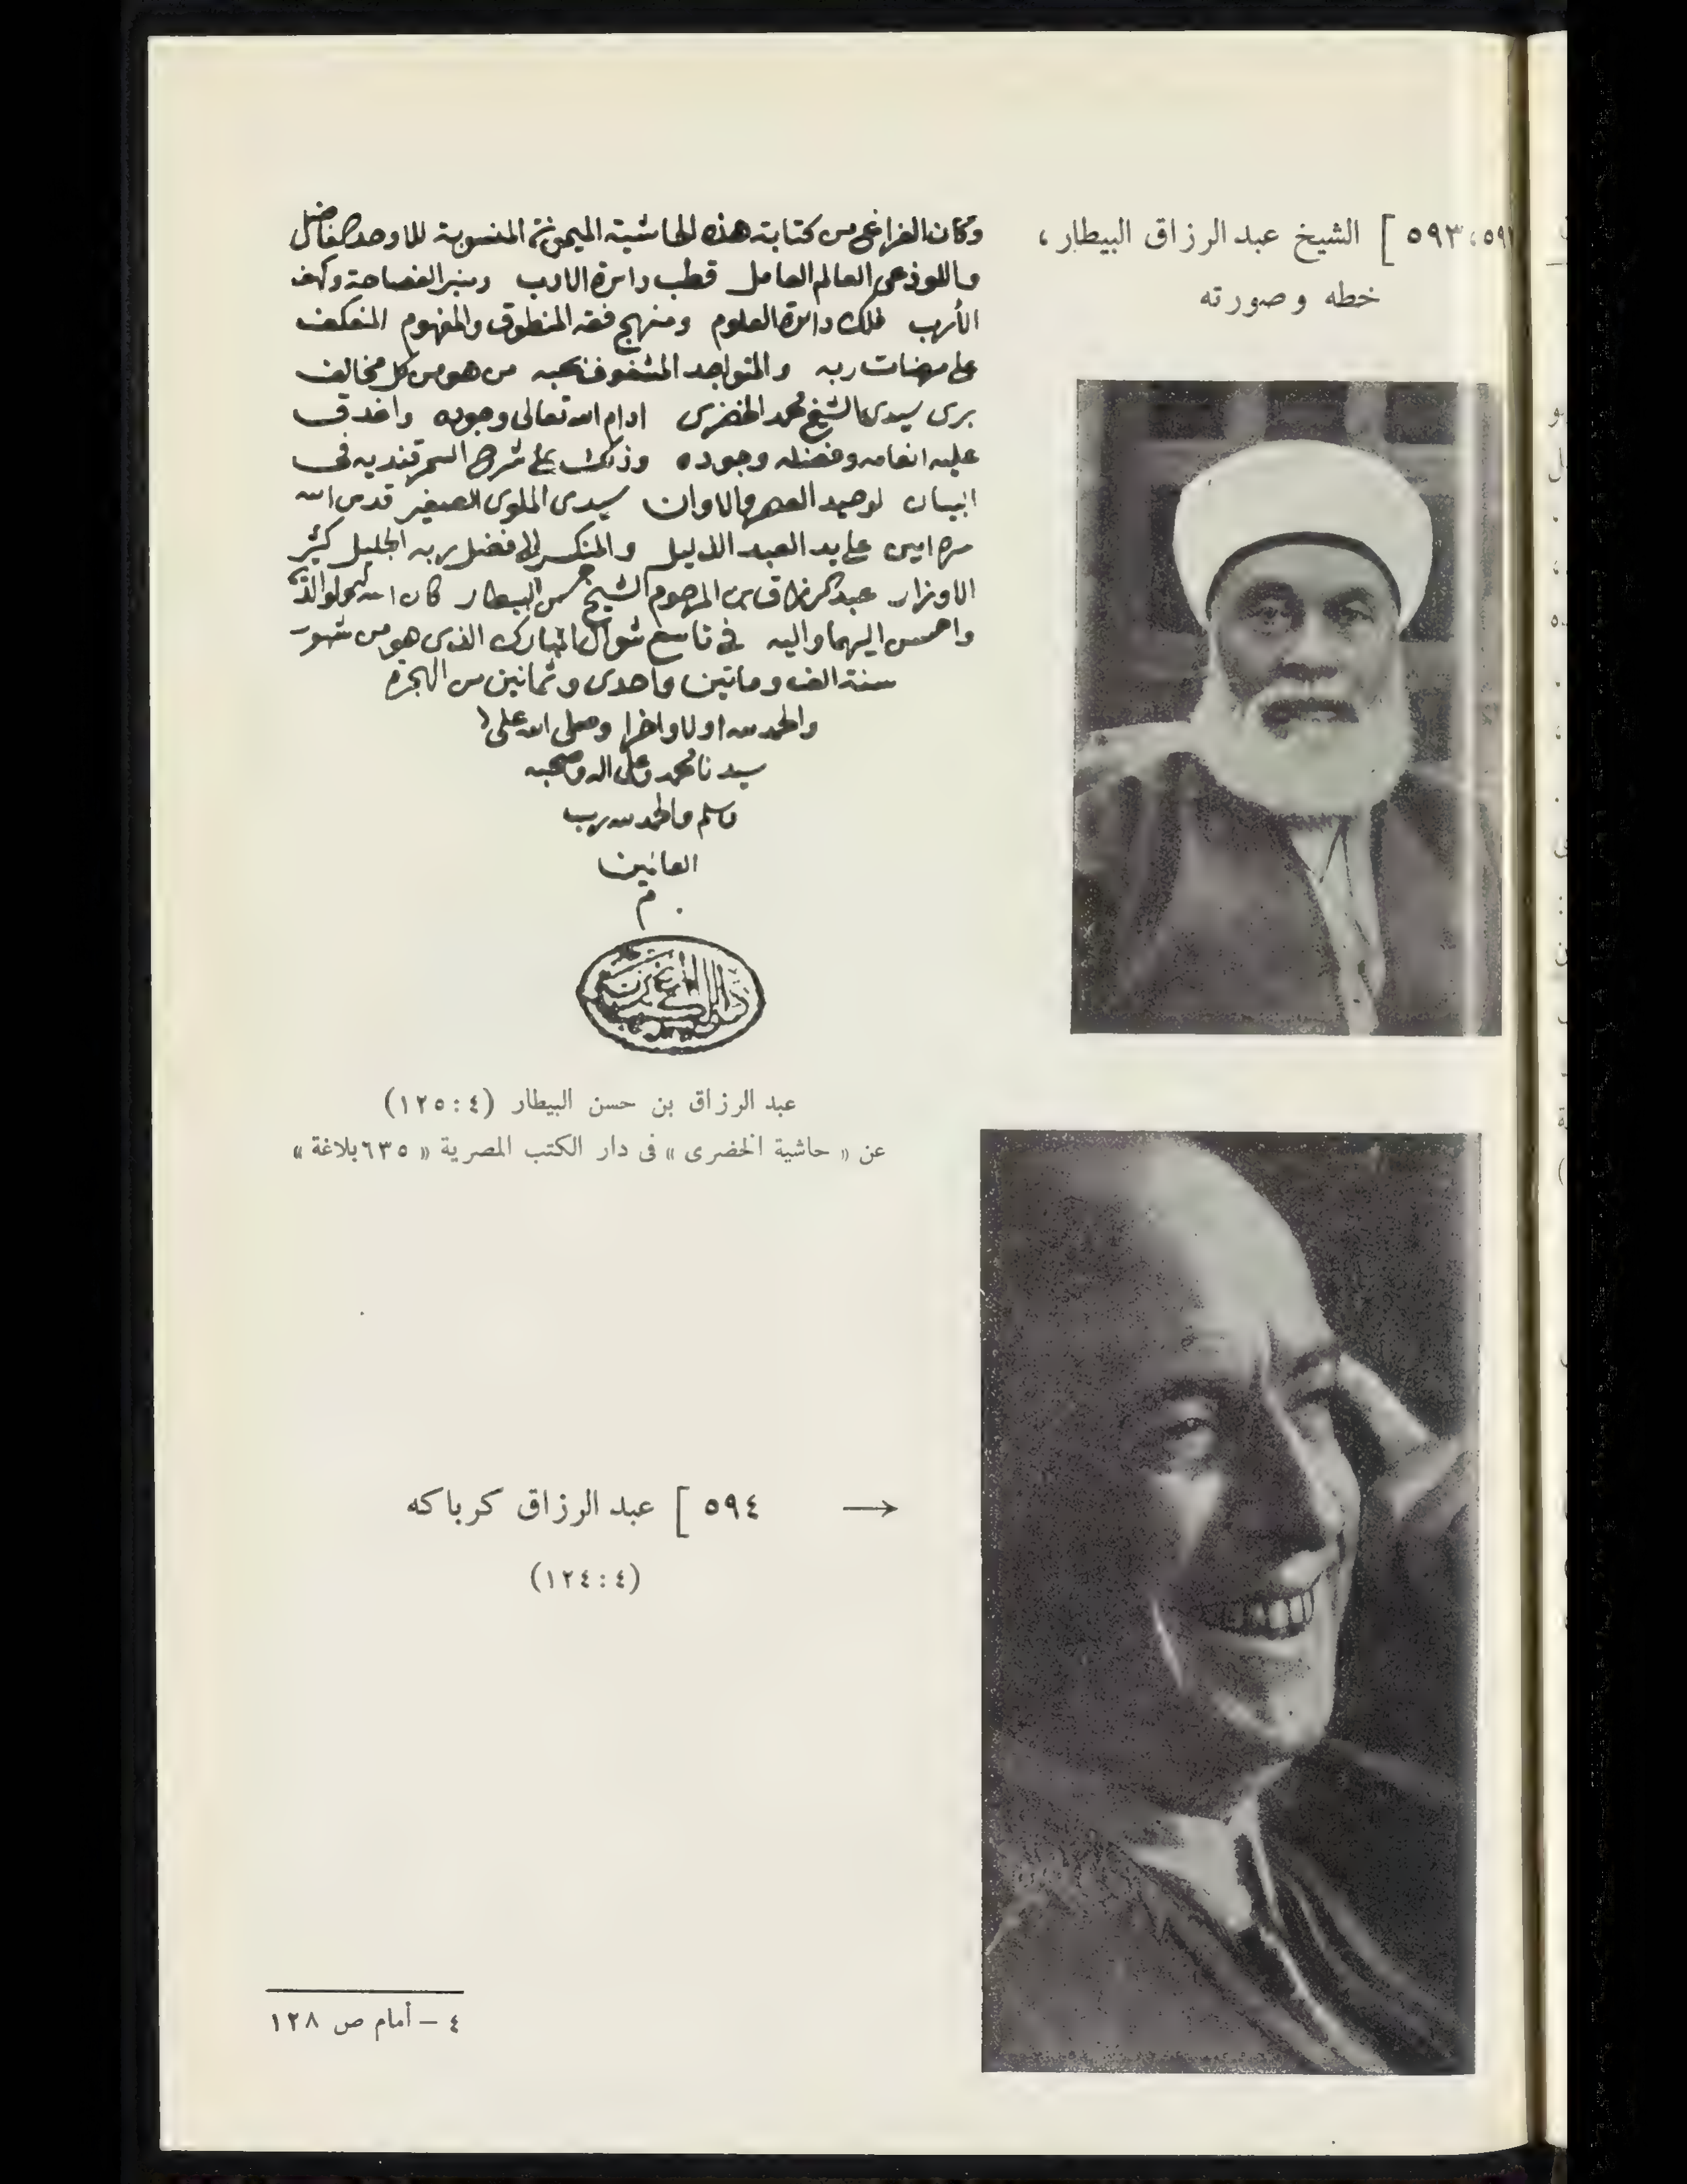 ٥٩٣، ٥٩٢ ] الشيخ عبد الرزاق البيطار،
خطه وصورته
وكان الفراغ من كتابة هذه الحاشية الميمونة المنسوبة للاوحد الفاضل
واللوذعي العالم العامل قطب دائرة الادب ومنبر الفصاحة وكهف
الأرب فلك دائرة العلوم ومنهج فقه المنطوق والمفهوم المنعكف
على مرضات ربه والمتواجد المشغوف بحبه من هو من كل مخالف
برى سيدى الشيخ محمد الخضرى ادام الله تعالى وجوده واغدق
عليه انعامه وفضله وجوده وذلك على شرح السمرقنديه فى
البيان لوحيد العصر والاوان سيدى الملوى الصغير قدس الله
سره امين على يد العبد الذليل والمنكسر لفضل ربه الجليل كثير
الاوزار عبد الرزاق ابن المرحوم الشيخ حسن البيطار كان الله له ولوالديه
واحسن اليهما واليه في تاسع شوال المبارك الذى هو من شهور
سنة الف وماتين واحدى وثمانين من الهجرة
والحمد لله اولا واخرا وصلى الله على
سيدنا محمد وعلى اله وصحبه
وسلم والحمد لله رب
العالمين
م
عبد الرزاق بن حسن البيطار (٤ : ١٢٥)
عن « حاشية الخضرى » فى دار الكتب المصرية « ٦٣٥ بلاغة »
٥٩٤ ] عبد الرزاق كرباكه
(٤ : ١٢٤)
٤ – أمام ص ١٢٨